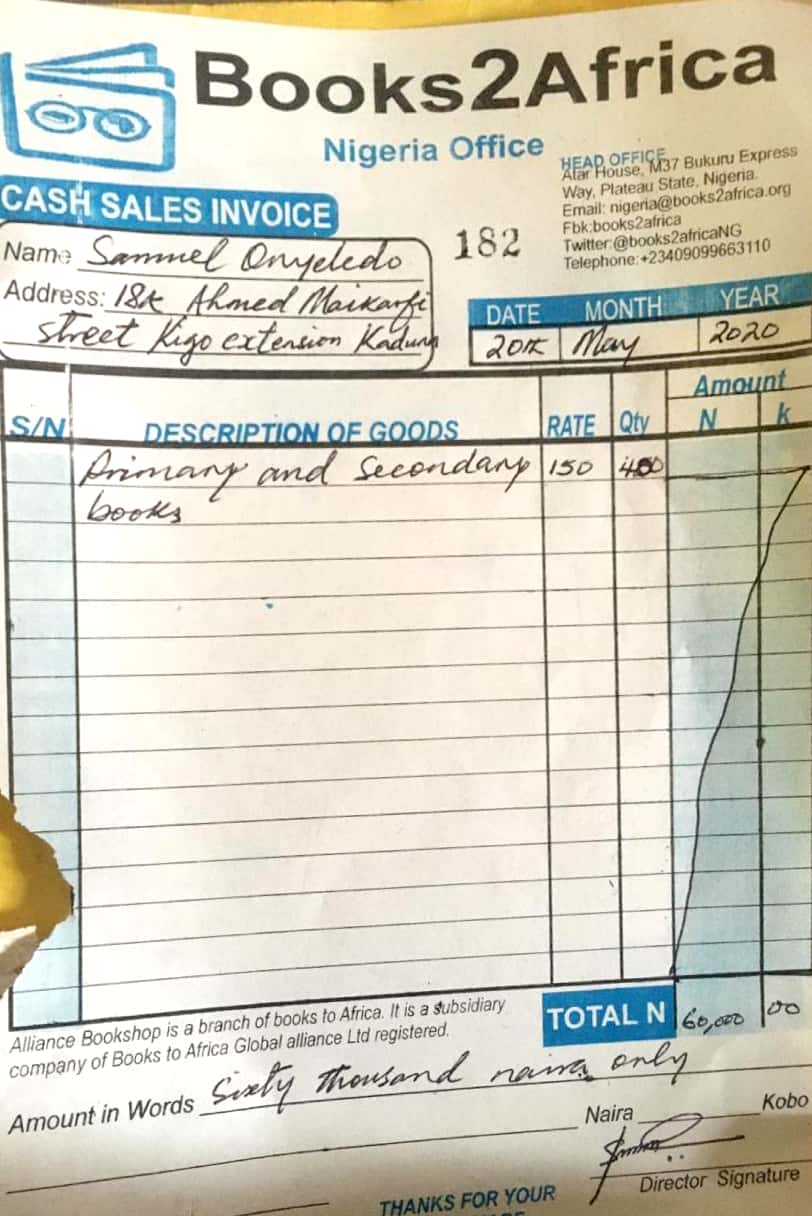 Books2Africa
Nigeria Office
HEAD OFFICE
Atar House, M37 Bukuru Express
Way, Plateau State, Nigeria.
Email: nigeria@books2africa.org
Fbk:books2africa
Twitter:@books2africaNG
Telephone:+23409099663110
CASH SALES INVOICE
182
Name Samuel Onyeledo
Address: 18k Ahmed Maikarfi
street Kigo extension Kaduna
DATE MONTH YEAR
20th May 2020
S/N DESCRIPTION OF GOODS RATE Qty Amount N k
Primary and Secondary 150 400
books
Alliance Bookshop is a branch of books to Africa. It is a subsidiary
company of Books to Africa Global alliance Ltd registered.
TOTAL N 60,000 00
Amount in Words Sixty thousand naira only
Naira Kobo
Director Signature
THANKS FOR YOUR